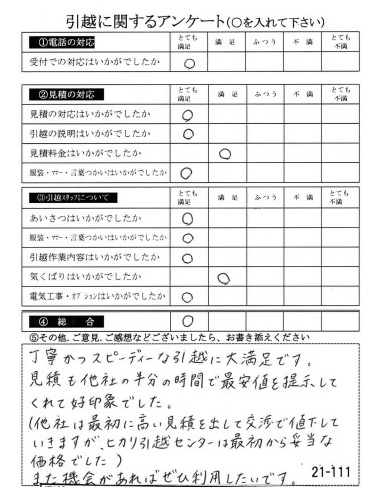 引越に関するアンケート(○を入れて下さい)
①電話の対応 とても満足 満 足 ふつう 不 満 とても不満
受付での対応はいかがでしたか ○
②見積の対応 とても満足 満 足 ふつう 不 満 とても不満
見積の対応はいかがでしたか ○
引越の説明はいかがでしたか ○
見積料金はいかがでしたか ○
服装・マナー・言葉つかいはいかがでしたか ○
③引越スタッフについて とても満足 満 足 ふつう 不 満 とても不満
あいさつはいかがでしたか ○
服装・マナー・言葉つかいはいかがでしたか ○
引越作業内容はいかがでしたか ○
気くばりはいかがでしたか ○
電気工事・オプションはいかがでしたか ○
④ 総 合 ○
⑤その他、ご意見、ご感想などございましたら、お書き添えください
丁寧かつスピーディーな引越に大満足です。
見積も他社の半分の時間で最安値を提示して
くれて好印象でした。
(他社は最初に高い見積を出して交渉で値下して
いきますが、ヒカリ引越センターは最初から妥当な
価格でした)
また機会があればぜひ利用したいです。
21-111